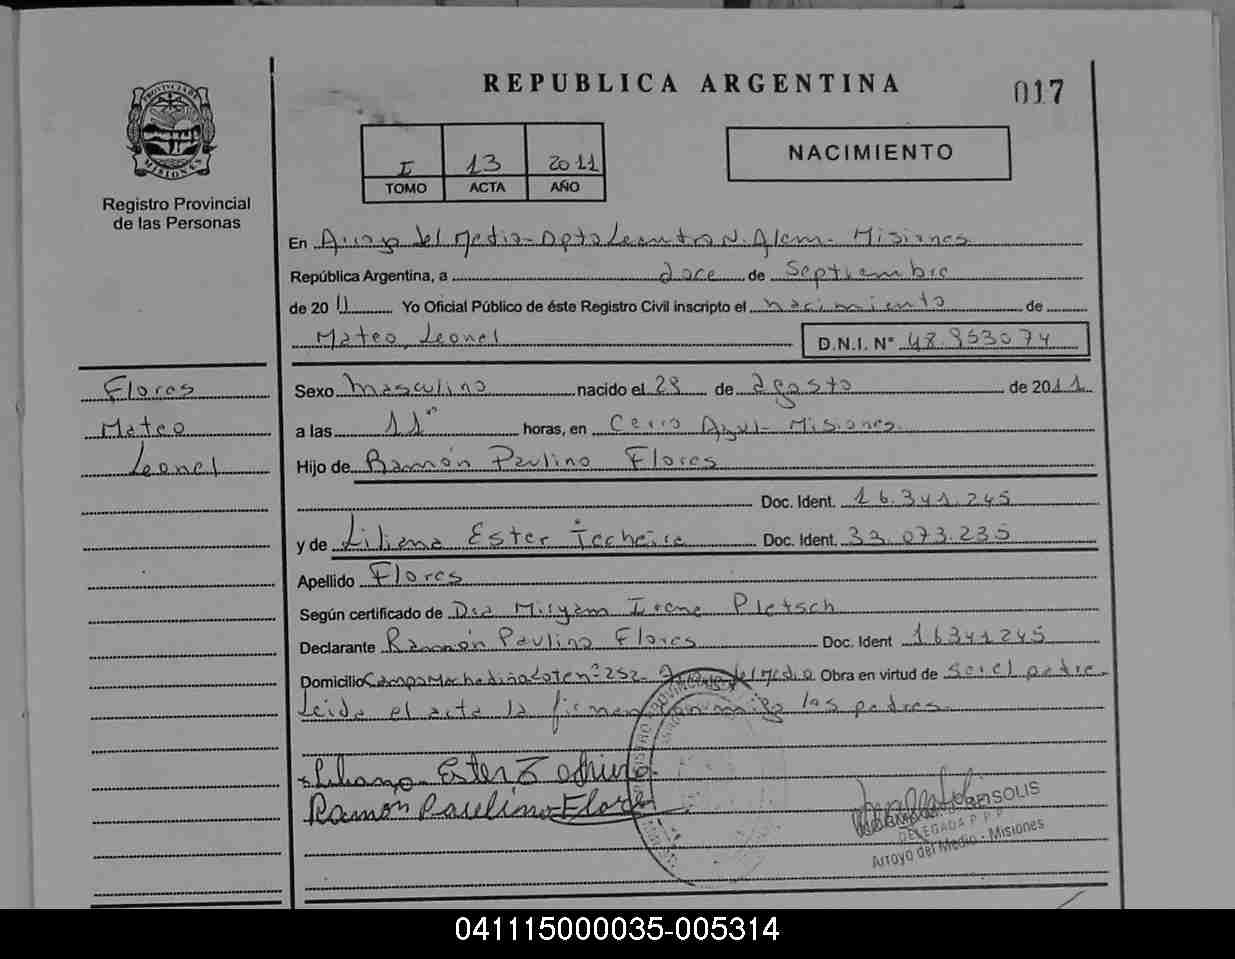 REPUBLICA ARGENTINA
017
PROVINCIA DE
MISIONES
Registro Provincial
de las Personas
I 13 2011
TOMO ACTA AÑO
NACIMIENTO
En Arroyo del Medio - Dpto Leandro N. Alem - Misiones
República Argentina, a doce de Septiembre
de 2011 Yo Oficial Público de éste Registro Civil inscripto el nacimiento de
Mateo Leonel D.N.I. N° 48.953074
Flores
Mateo
Leonel
Sexo masculino nacido el 29 de agosto de 2011
a las 11 horas, en Cerro Azul - Misiones
Hijo de Ramón Paulino Flores
Doc. Ident. 16.341.245
y de Liliana Ester Techeira Doc. Ident. 33.073.235
Apellido Flores
Según certificado de Dra Miryam Irene Pletsch
Declarante Ramón Paulino Flores Doc. Ident 16341245
Domicilio Campo Machadiña Lote n° 252 Arroyo del Medio Obra en virtud de ser el padre
Leida el acta la firman conmigo los padres
Liliana Ester Techeira
Ramón Paulino Flores
GRISOLIS
DELEGADA P.P.P
Arroyo del Medio - Misiones
041115000035-005314